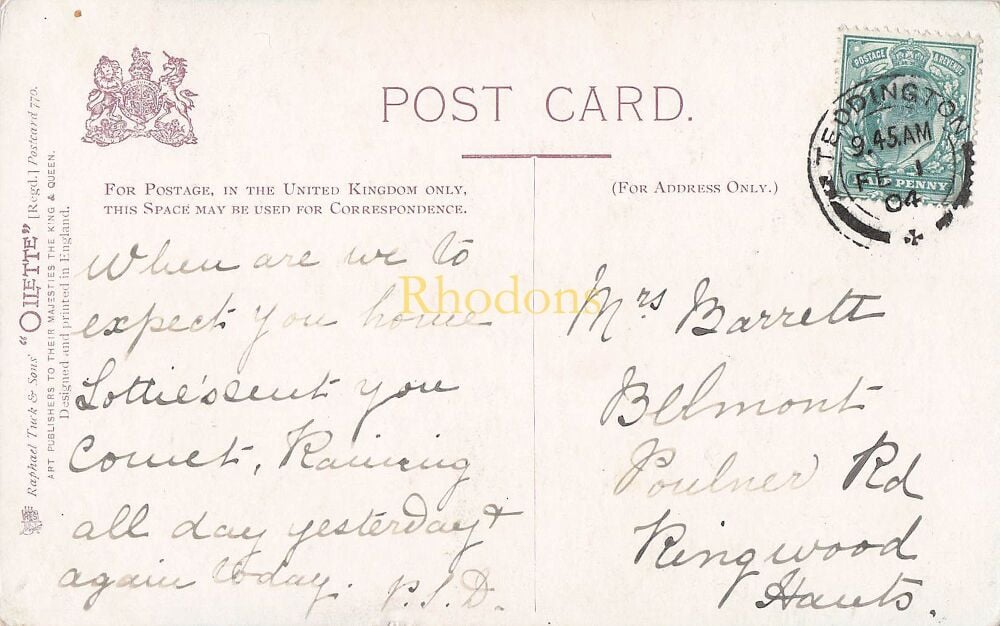 POST CARD.
FOR POSTAGE, IN THE UNITED KINGDOM ONLY,
THIS SPACE MAY BE USED FOR CORRESPONDENCE.
(FOR ADDRESS ONLY.)
Raphael Tuck & Sons' "OILETTE" [Regd.] Postcard 770.
ART PUBLISHERS TO THEIR MAJESTIES THE KING & QUEEN.
Designed and printed in England.
POSTAGE & REVENUE
HALF PENNY
TEDDINGTON
9.45.AM
FE 1
04
When are we to
expect you home
Lottie's sent you
Comet, Raining
all day yesterday &
again today. P.S.D.
Mrs Barrett
Belmont
Poulner Rd
Ringwood
Hants.
Rhodons